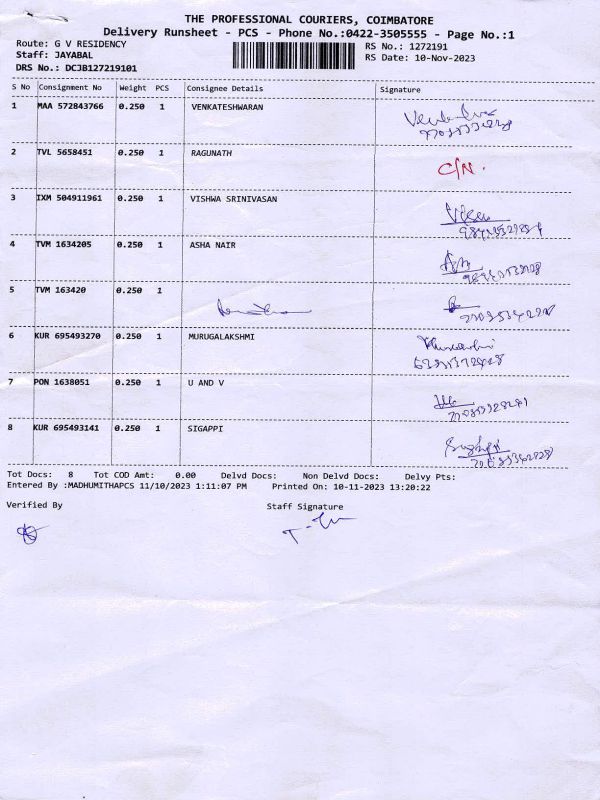 THE PROFESSIONAL COURIERS, COIMBATORE
Delivery Runsheet - PCS - Phone No.:0422-3505555 - Page No.:1
Route: G V RESIDENCY
Staff: JAYABAL
DRS No.: DCJB127219101
RS No.: 1272191
RS Date: 10-Nov-2023
S No Consignment No Weight PCS Consignee Details Signature
1 MAA 572843766 0.250 1 VENKATESHWARAN
2 TVL 5658451 0.250 1 RAGUNATH C/N.
3 IXM 504911961 0.250 1 VISHWA SRINIVASAN
4 TVM 1634205 0.250 1 ASHA NAIR
5 TVM 163420 0.250 1
6 KUR 695493270 0.250 1 MURUGALAKSHMI
7 PON 1638051 0.250 1 U AND V
8 KUR 695493141 0.250 1 SIGAPPI
Tot Docs: 8 Tot COD Amt: 0.00 Delvd Docs: Non Delvd Docs: Delvy Pts:
Entered By :MADHUMITHAPCS 11/10/2023 1:11:07 PM Printed On: 10-11-2023 13:20:22
Verified By Staff Signature